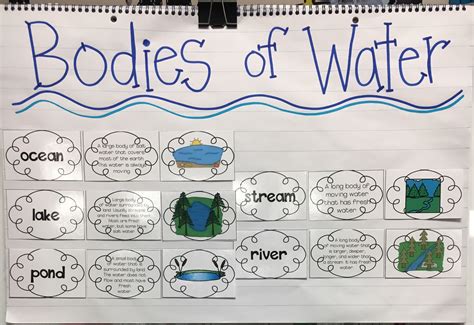 Bodies of Water
ocean
A large body of salt
water that covers
most of the earth.
The water is always
moving.
lake
A large body of
water surrounded by
land. Usually streams
and rivers feed into them.
Most are fresh
water, but some have
salt water.
pond
A small body of
water that is
surrounded by land.
The water does not
flow and most have fresh
water.
stream
A long body of
moving water
that has fresh
water.
river
A long body of
moving water that
is larger, deeper,
longer, and wider than
a stream. It has fresh
water.